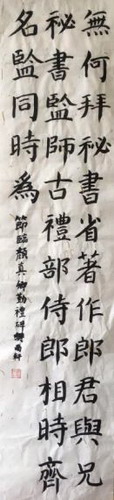 無何拜祕書省著作郎君與兄
秘書監師古禮部侍郎相時齊
名監同時為
節臨顏真卿勤禮碑